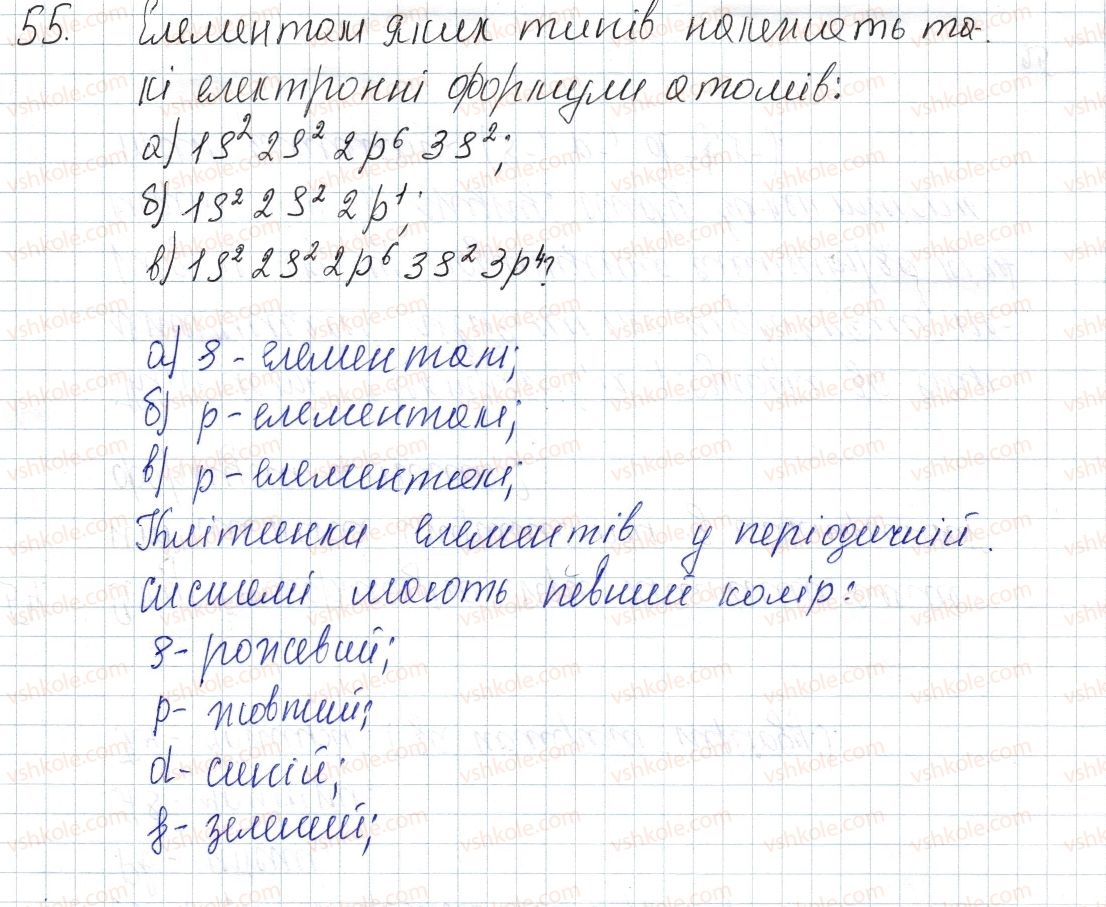 55. Елементам яких типів належать та-
кі електронні формули атомів:
а) 1s² 2s² 2p⁶ 3s²;
б) 1s² 2s² 2p¹;
в) 1s² 2s² 2p⁶ 3s² 3p⁴?
а) s - елементам;
б) p - елементам;
в) p - елементам;
Клітинки елементів у періодичній
системі мають певний колір:
s - рожевий;
p - жовтий;
d - синій;
f - зелений;